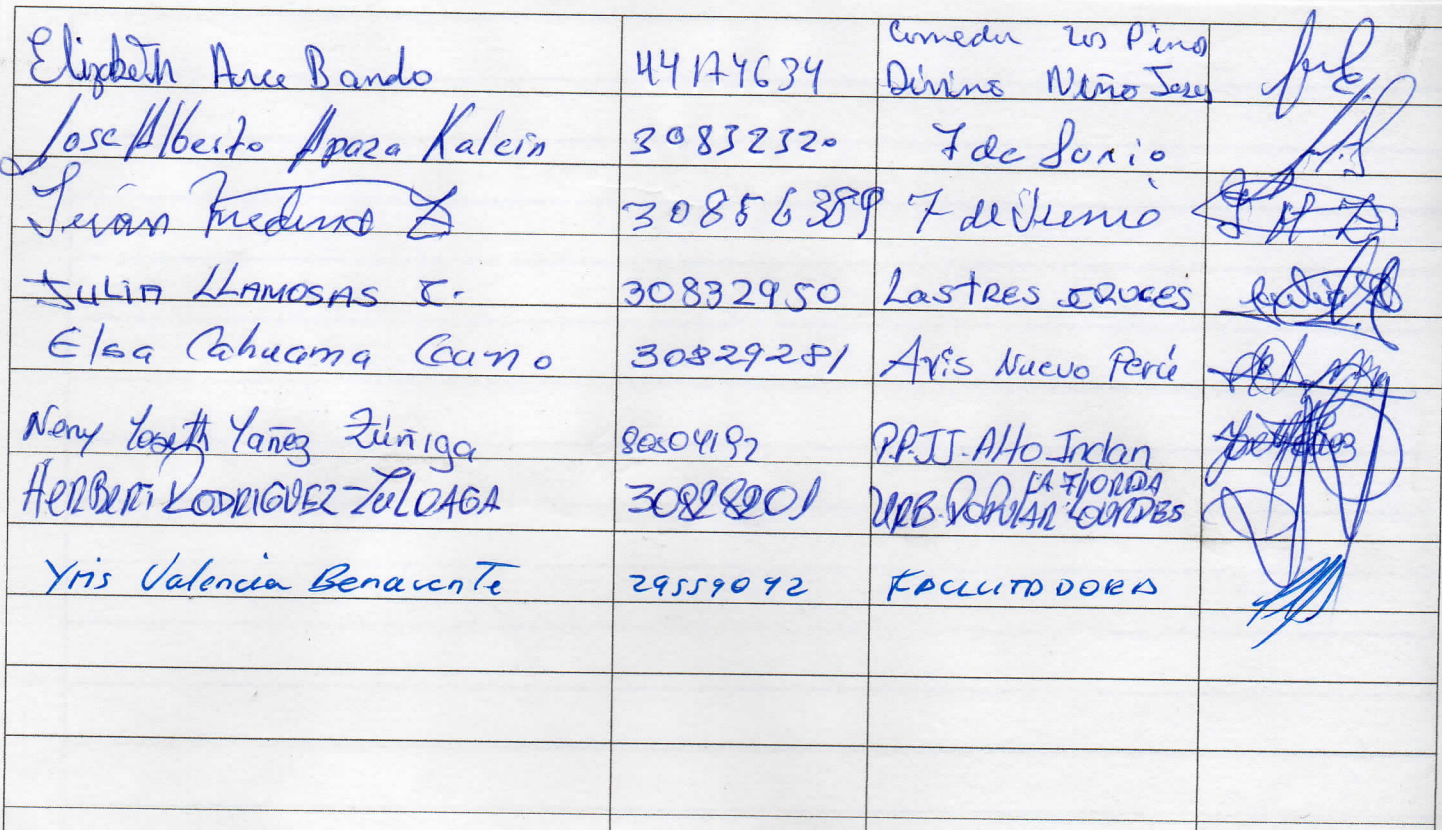 Elizabeth Arce Bando 44174634 Comedor Los Pinos
Divino Niño Jesus
Jose Alberto Apaza Kalcin 30832320 7 de Junio
Medina Z 30856389 7 de Junio
JULIA LLAMOSAS C. 30832950 LAS TRES CRUCES
Elsa Cahuama Ccuno 30829281 Avis Nuevo Perú
Neny Yoseth Yañez Zúñiga 80504192 PP.JJ. Alto Inclan
HERBERT RODRIGUEZ ZULOAGA LA FLORIDA
URB. POPULAR LOURDES
Yris Valencia Benavente 29559092 FACLLITADORA